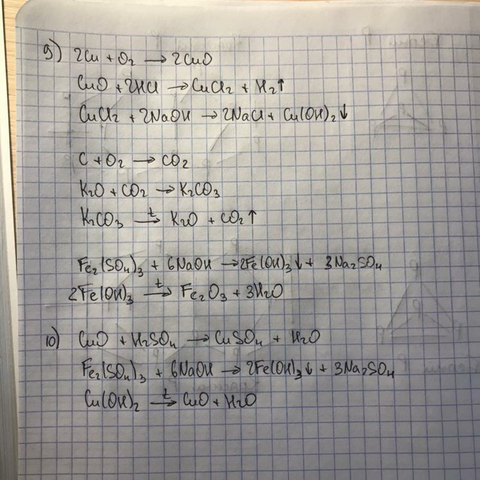 9) 2Cu + O₂ → 2CuO
CuO + 2HCl → CuCl₂ + H₂↑
CuCl₂ + 2NaOH → 2NaCl + Cu(OH)₂↓
C + O₂ → CO₂
K₂O + CO₂ → K₂CO₃
K₂CO₃ –t→ K₂O + CO₂↑
Fe₂(SO₄)₃ + 6NaOH → 2Fe(OH)₃↓ + 3Na₂SO₄
2Fe(OH)₃ –t→ Fe₂O₃ + 3H₂O
10) CuO + H₂SO₄ → CuSO₄ + H₂O
Fe₂(SO₄)₃ + 6NaOH → 2Fe(OH)₃↓ + 3Na₂SO₄
Cu(OH)₂ –t→ CuO + H₂O